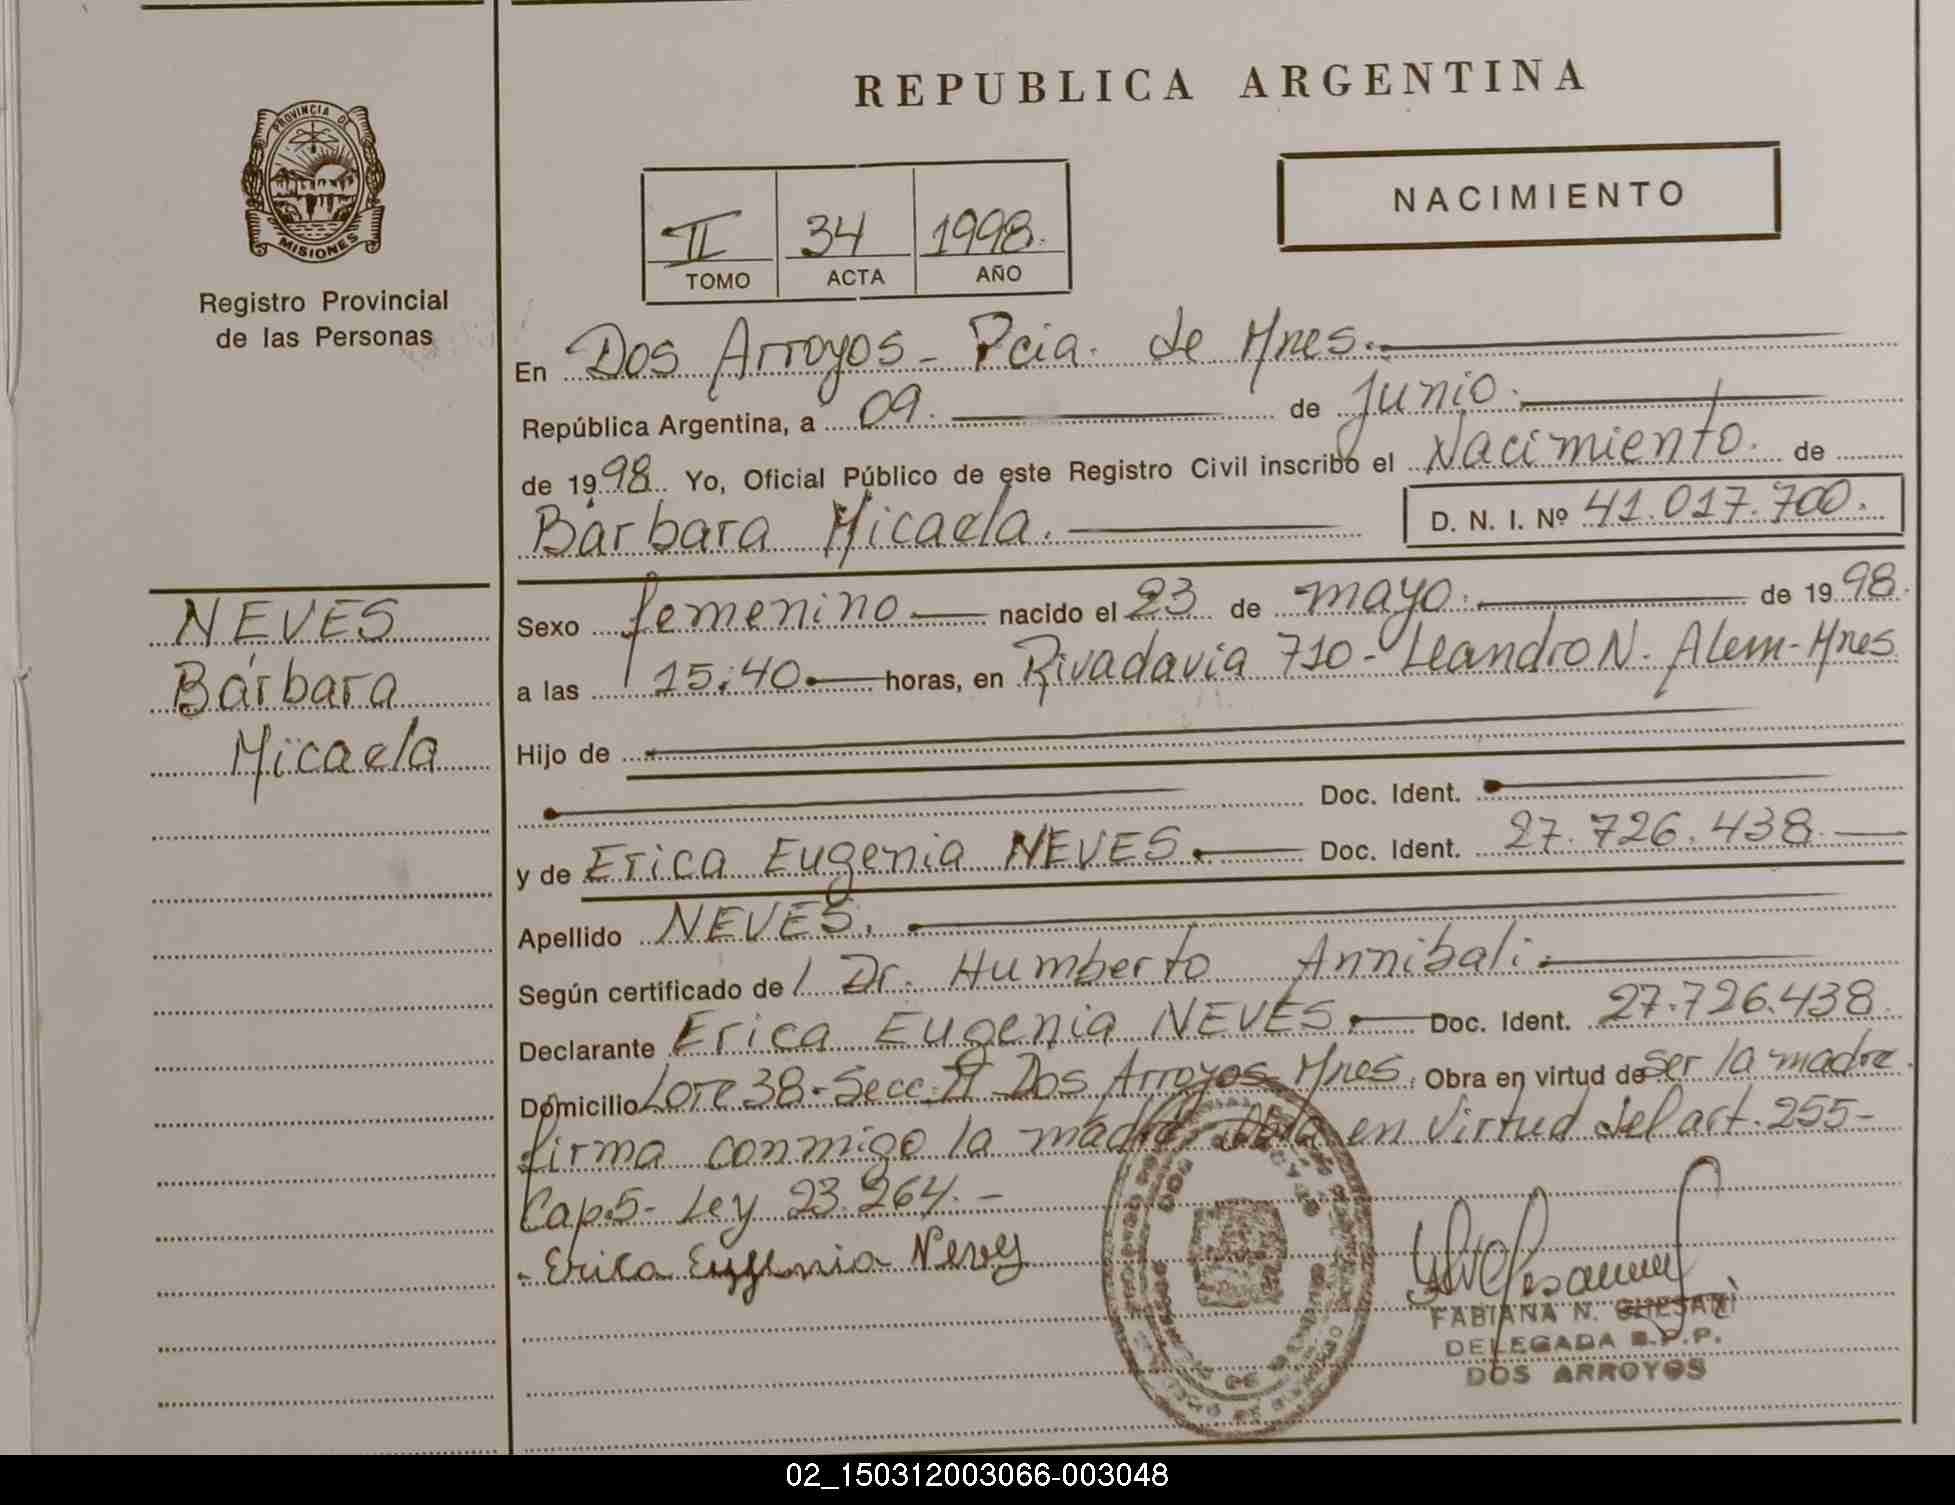 REPUBLICA ARGENTINA
PROVINCIA DE
MISIONES
Registro Provincial
de las Personas
NACIMIENTO
II 34 1998.
TOMO ACTA AÑO
En Dos Arroyos - Pcia. de Mnes.
República Argentina, a 09. de junio.
de 1998. Yo, Oficial Público de este Registro Civil inscribo el Nacimiento. de
Bárbara Micaela. D. N. I. Nº 41.017.700.
NEVES
Bárbara
Micaela
Sexo femenino nacido el 23 de mayo. de 1998.
a las 15:40 horas, en Rivadavia 710 - Leandro N. Alem - Mnes
Hijo de
Doc. Ident.
y de Erica Eugenia NEVES. Doc. Ident. 27.726.438.
Apellido NEVES.
Según certificado de / Dr. Humberto Annibali.
Declarante Erica Eugenia NEVES. Doc. Ident. 27.726.438.
Domicilio Lote 38 - Secc. II Dos Arroyos Mnes. Obra en virtud de ser la madre.
firma conmigo la madre, en virtud del art. 255 -
Cap. 5 - Ley 23.264. -
Erica Eugenia Neves
FABIANA N.
DELEGADA R.P.P.
DOS ARROYOS
02_150312003066-003048